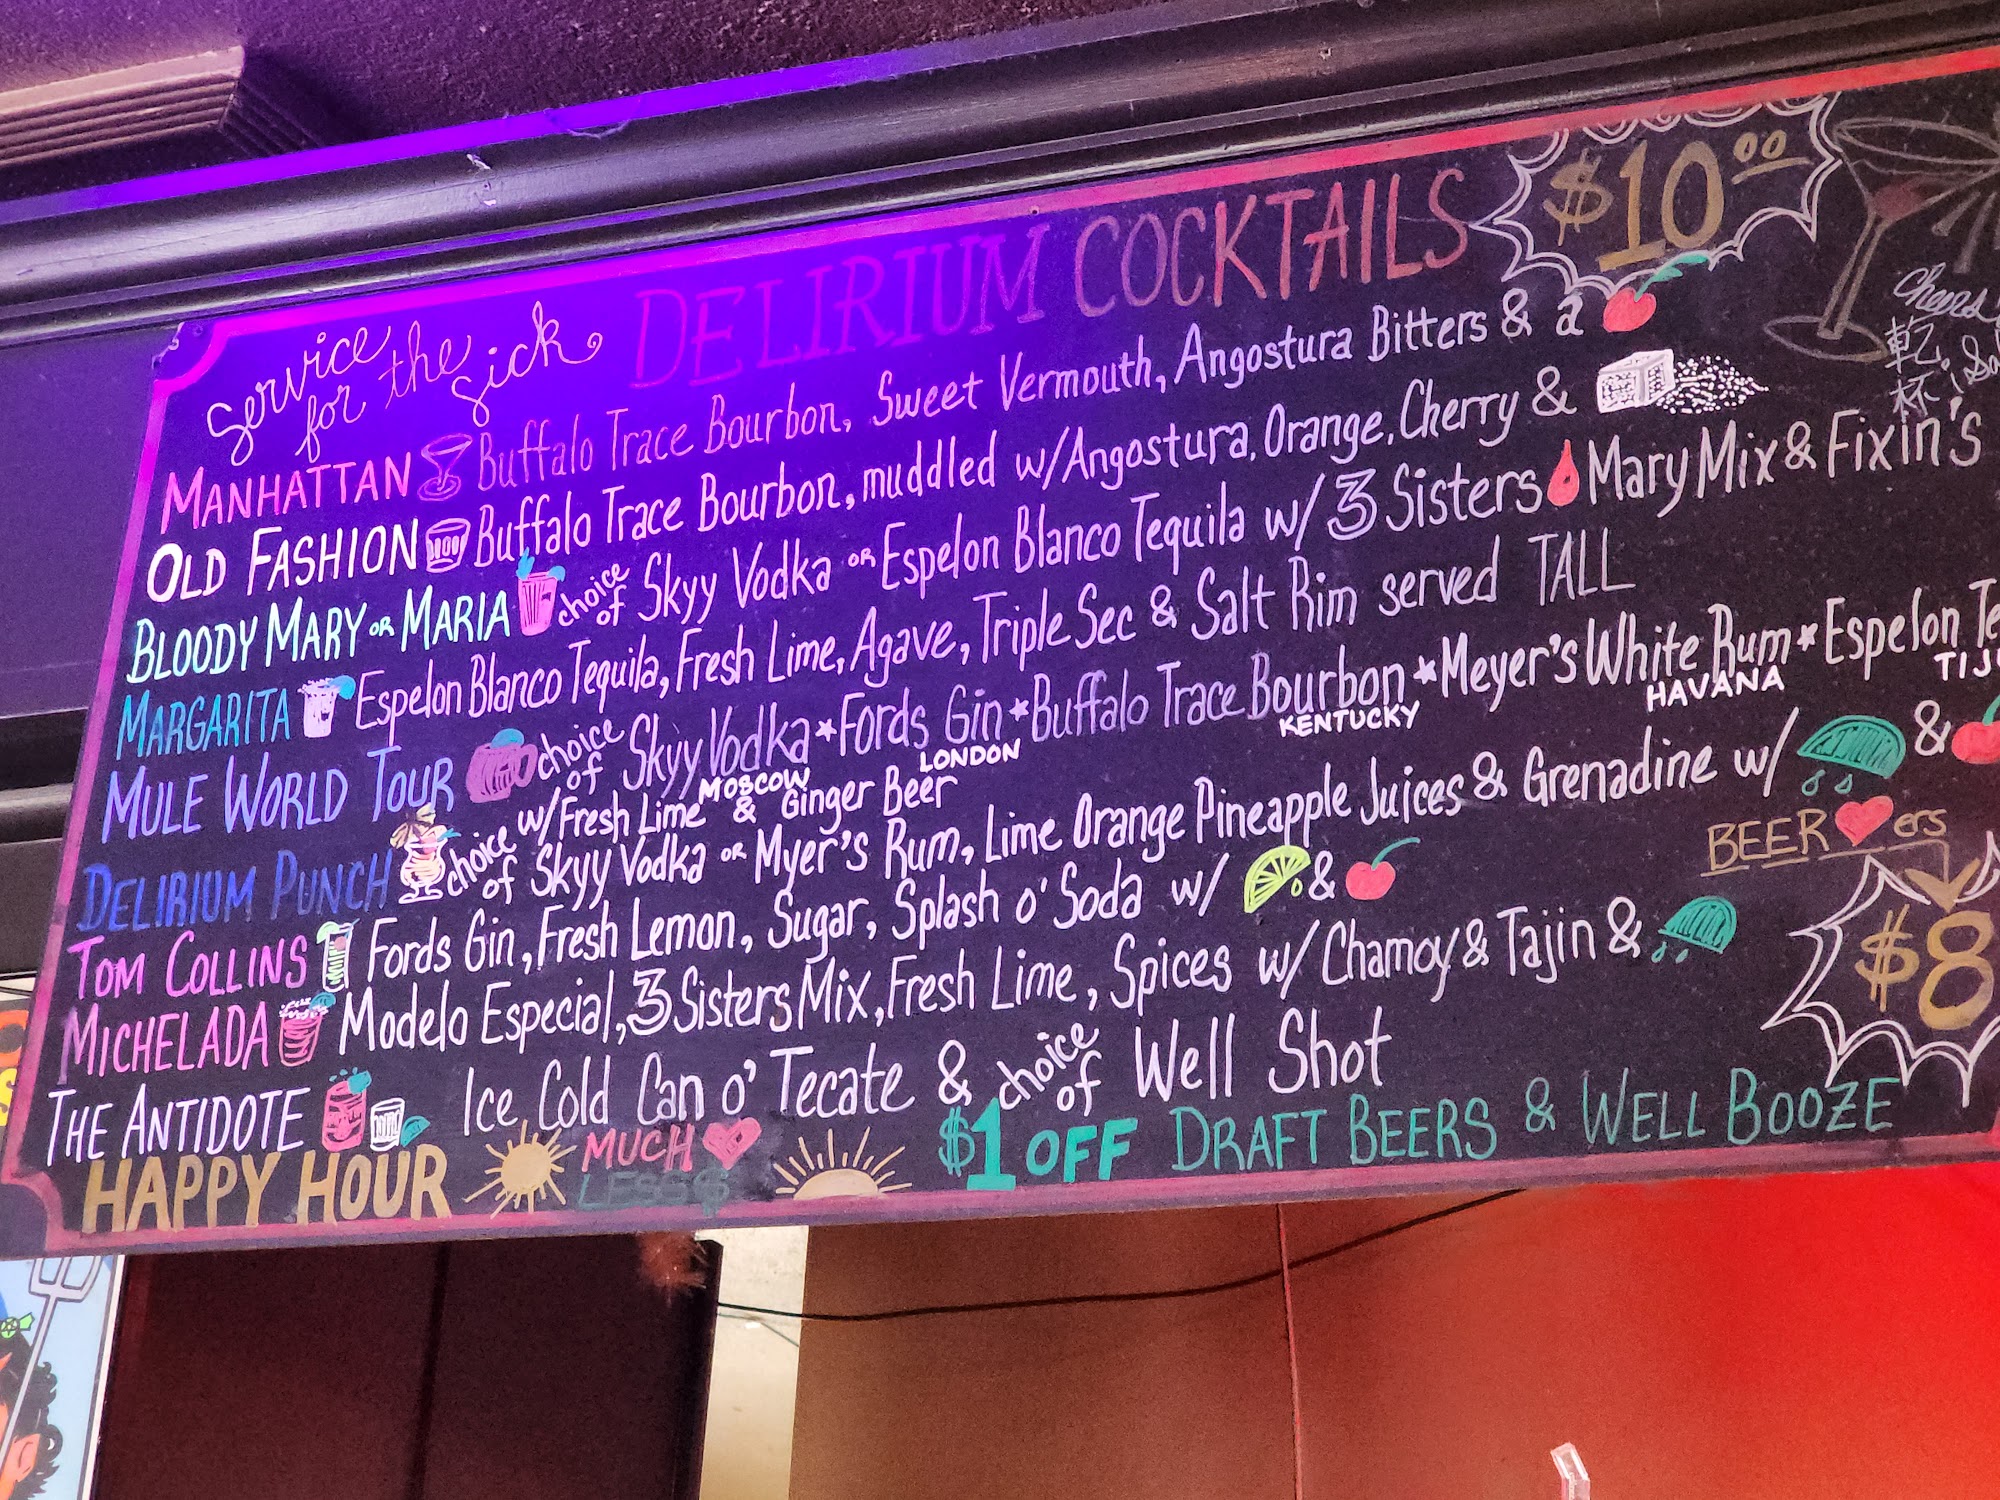 Service
for the
Sick
DELIRIUM COCKTAILS $10.00
Cheers
乾
杯!
MANHATTAN Buffalo Trace Bourbon, Sweet Vermouth, Angostura Bitters & a
OLD FASHION Buffalo Trace Bourbon, muddled w/Angostura, Orange, Cherry &
BLOODY MARY OR MARIA choice of Skyy Vodka OR Espelon Blanco Tequila w/ 3 Sisters Mary Mix & Fixin's
MARGARITA Espelon Blanco Tequila, Fresh Lime, Agave, Triple Sec & Salt Rim served TALL
MULE WORLD TOUR choice of Skyy Vodka * Fords Gin * Buffalo Trace Bourbon * Meyer's White Rum * Espelon
MOSCOW LONDON KENTUCKY HAVANA
w/Fresh Lime & Ginger Beer
DELIRIUM PUNCH choice of Skyy Vodka OR Myer's Rum, Lime Orange Pineapple Juices & Grenadine w/ &
TOM COLLINS Fords Gin, Fresh Lemon, Sugar, Splash o' Soda w/ &
BEER ers
MICHELADA Modelo Especial, 3 Sisters Mix, Fresh Lime, Spices w/ Chamoy & Tajin &
$8
THE ANTIDOTE Ice Cold Can o' Tecate & choice of Well Shot
HAPPY HOUR MUCH $1 OFF DRAFT BEERS & WELL BOOZE
LESS $